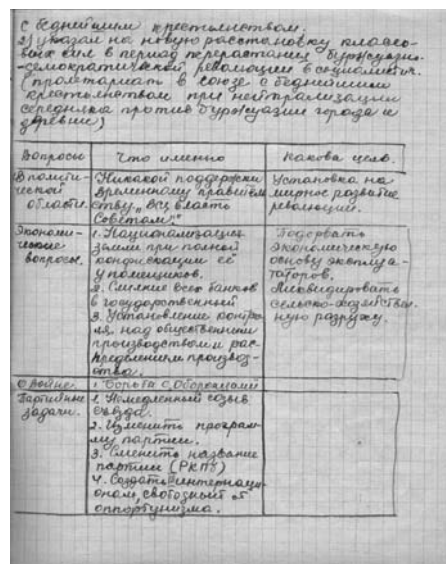 с беднейшим крестьянством.
2) указал на новую расстановку классо-
вых сил в период перерастания буржуазн.
-демократической революции в социалистич.
(пролетариат в союзе с беднейшим
крестьянством при нейтрализации
середняка против буржуазии города и
деревни)
Вопросы Что именно Какова цель.
В полити-
ческой
области.
Никакой поддержки
временному правитель
ству, "Вся власть
Советам!"
Установка на
мирное развитие
революции.
Экономи-
ческие
вопросы.
1. Национализация
земли при полной
конфискации её
у помещиков.
2. Слияние всех банков
в государственный
3. Установление контро
ля над общественным
производством и рас-
пределением производ-
ства.
Подорвать
экономическую
основу эксплуа-
таторов.
Ликвидировать
сельско-хозяйствен
ную разруху.
О войне.
1. Борьба с оборонцами
Партийные
задачи.
1. Немедленный созыв
съезда.
2. Изменить програм-
му партии.
3. Сменить название
партии (РКП)
4. Создать III интернаци-
онал, свободный от
оппортунизма.